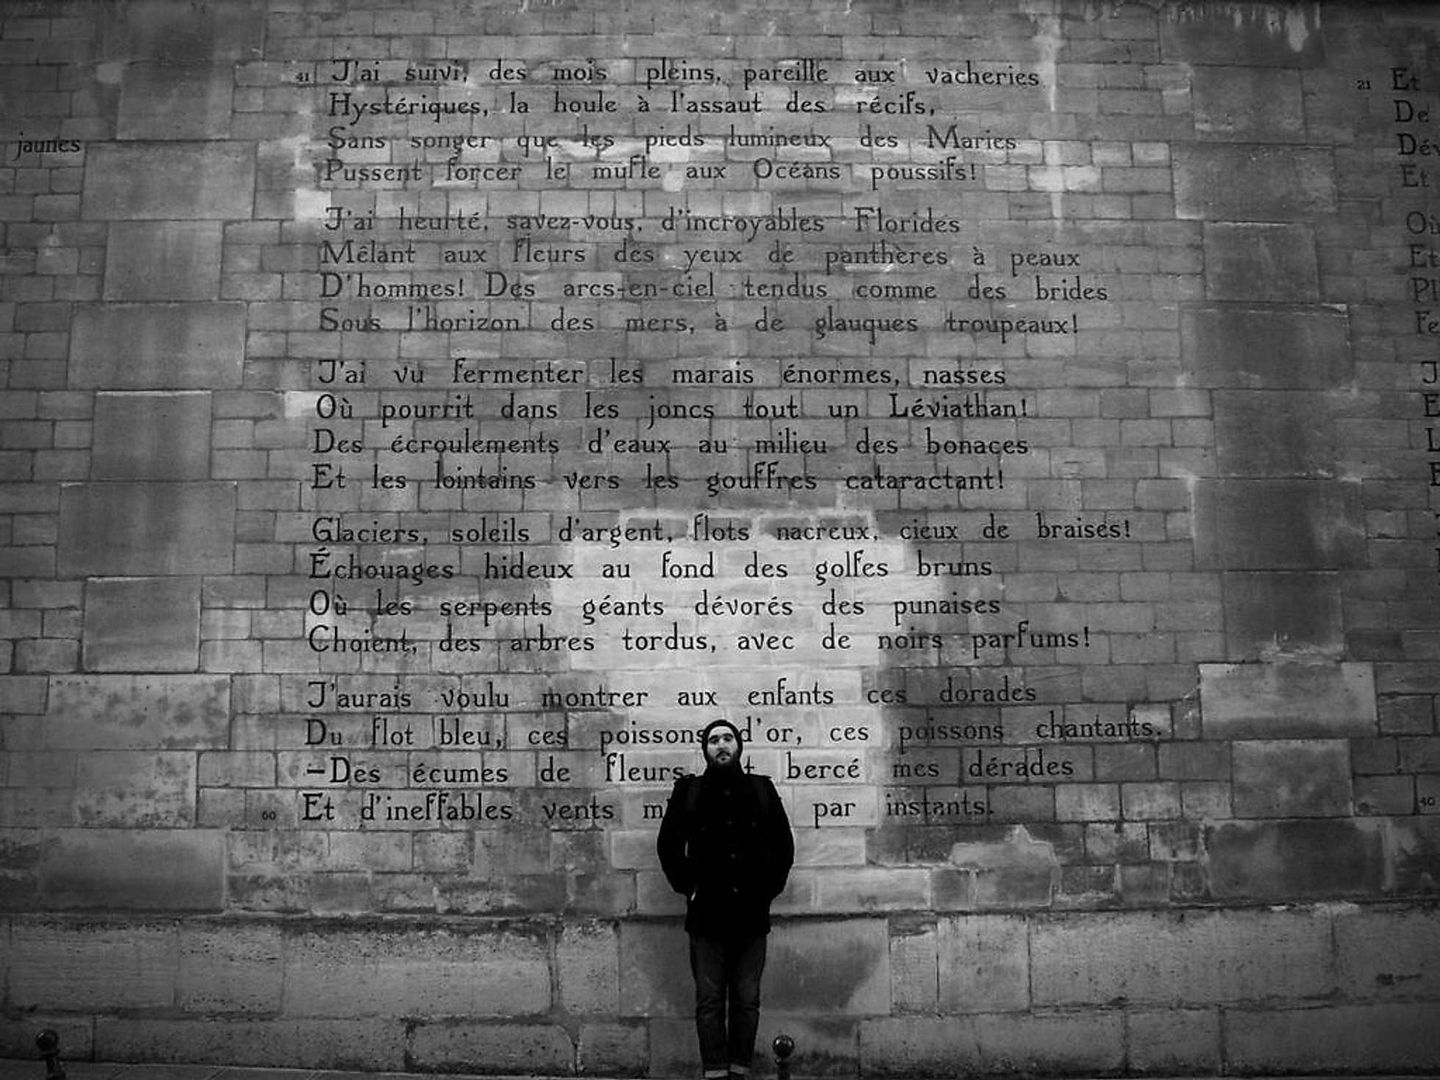 jaunes
41 J'ai suivi, des mois pleins, pareille aux vacheries
Hystériques, la houle à l'assaut des récifs,
Sans songer que les pieds lumineux des Maries
Pussent forcer le mufle aux Océans poussifs!
J'ai heurté, savez-vous, d'incroyables Florides
Mêlant aux fleurs des yeux de panthères à peaux
D'hommes! Des arcs-en-ciel tendus comme des brides
Sous l'horizon des mers, à de glauques troupeaux!
J'ai vu fermenter les marais énormes, nasses
Où pourrit dans les joncs tout un Léviathan!
Des écroulements d'eaux au milieu des bonaces
Et les lointains vers les gouffres cataractant!
Glaciers, soleils d'argent, flots nacreux, cieux de braises!
Échouages hideux au fond des golfes bruns
Où les serpents géants dévorés des punaises
Choient, des arbres tordus, avec de noirs parfums!
J'aurais voulu montrer aux enfants ces dorades
Du flot bleu, ces poissons d'or, ces poissons chantants.
–Des écumes de fleurs bercé mes dérades
60 Et d'ineffables vents par instants.
21 Et
De
Et
Où
Et
40